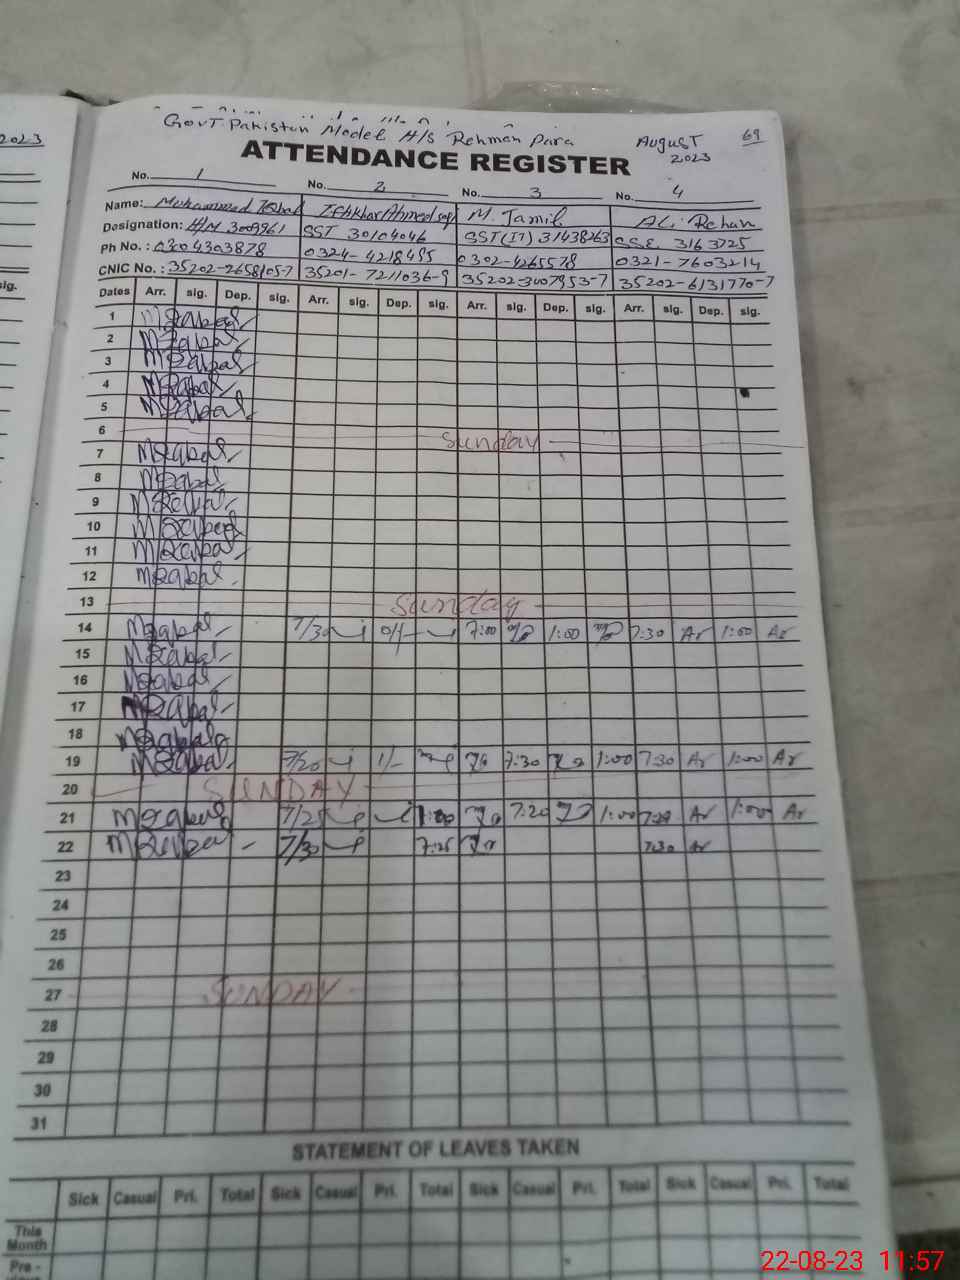 2023
Govt. Pakistan Model H/S Rehman Para
August 2023
69
ATTENDANCE REGISTER
No. 1 No. 2 No. 3 No. 4
Name: Muhammad Iqbal M. Jamil Ali Rehan
Designation: H/M 3009961 SST 30104046 SST(IT) 31438263 S.S.E. 3163725
Ph No.: 0304303878 0324-4218495 0302-4265578 0321-7603214
CNIC No.: 35202-2658105-7 35201-7211036-9 35202-3007953-7 35202-6131770-7
sig.
Dates Arr. sig. Dep. sig. Arr. sig. Dep. sig. Arr. sig. Dep. sig. Arr. sig. Dep. sig.
1 MIqbal
2 MIqbal
3 MIqbal
4 MIqbal
5 MIqbal
6 Sunday
7 MIqbal
8 MIqbal
9 MIqbal
10 MIqbal
11 MIqbal
12 MIqbal
13 Sunday
14 MIqbal 7/30 7:00 1:00 7:30 Ar 1:00 Ar
15 MIqbal
16 MIqbal
17 MIqbal
18 MIqbal
19 MIqbal 7/20 1/- 7:30 1:00 7:30 Ar 1:00 Ar
20 SUNDAY
21 MIqbal 7/25 1:00 7:20 1:00 7:28 Ar 1:00 Ar
22 MIqbal 7/30 7:25 7:30 Ar
23
24
25
26
27 SUNDAY
28
29
30
31
STATEMENT OF LEAVES TAKEN
Sick Casual Pri. Total Sick Casual Pri. Total Sick Casual Pri. Total Sick Casual Pri. Total
This Month
Pre-
22-08-23 11:57